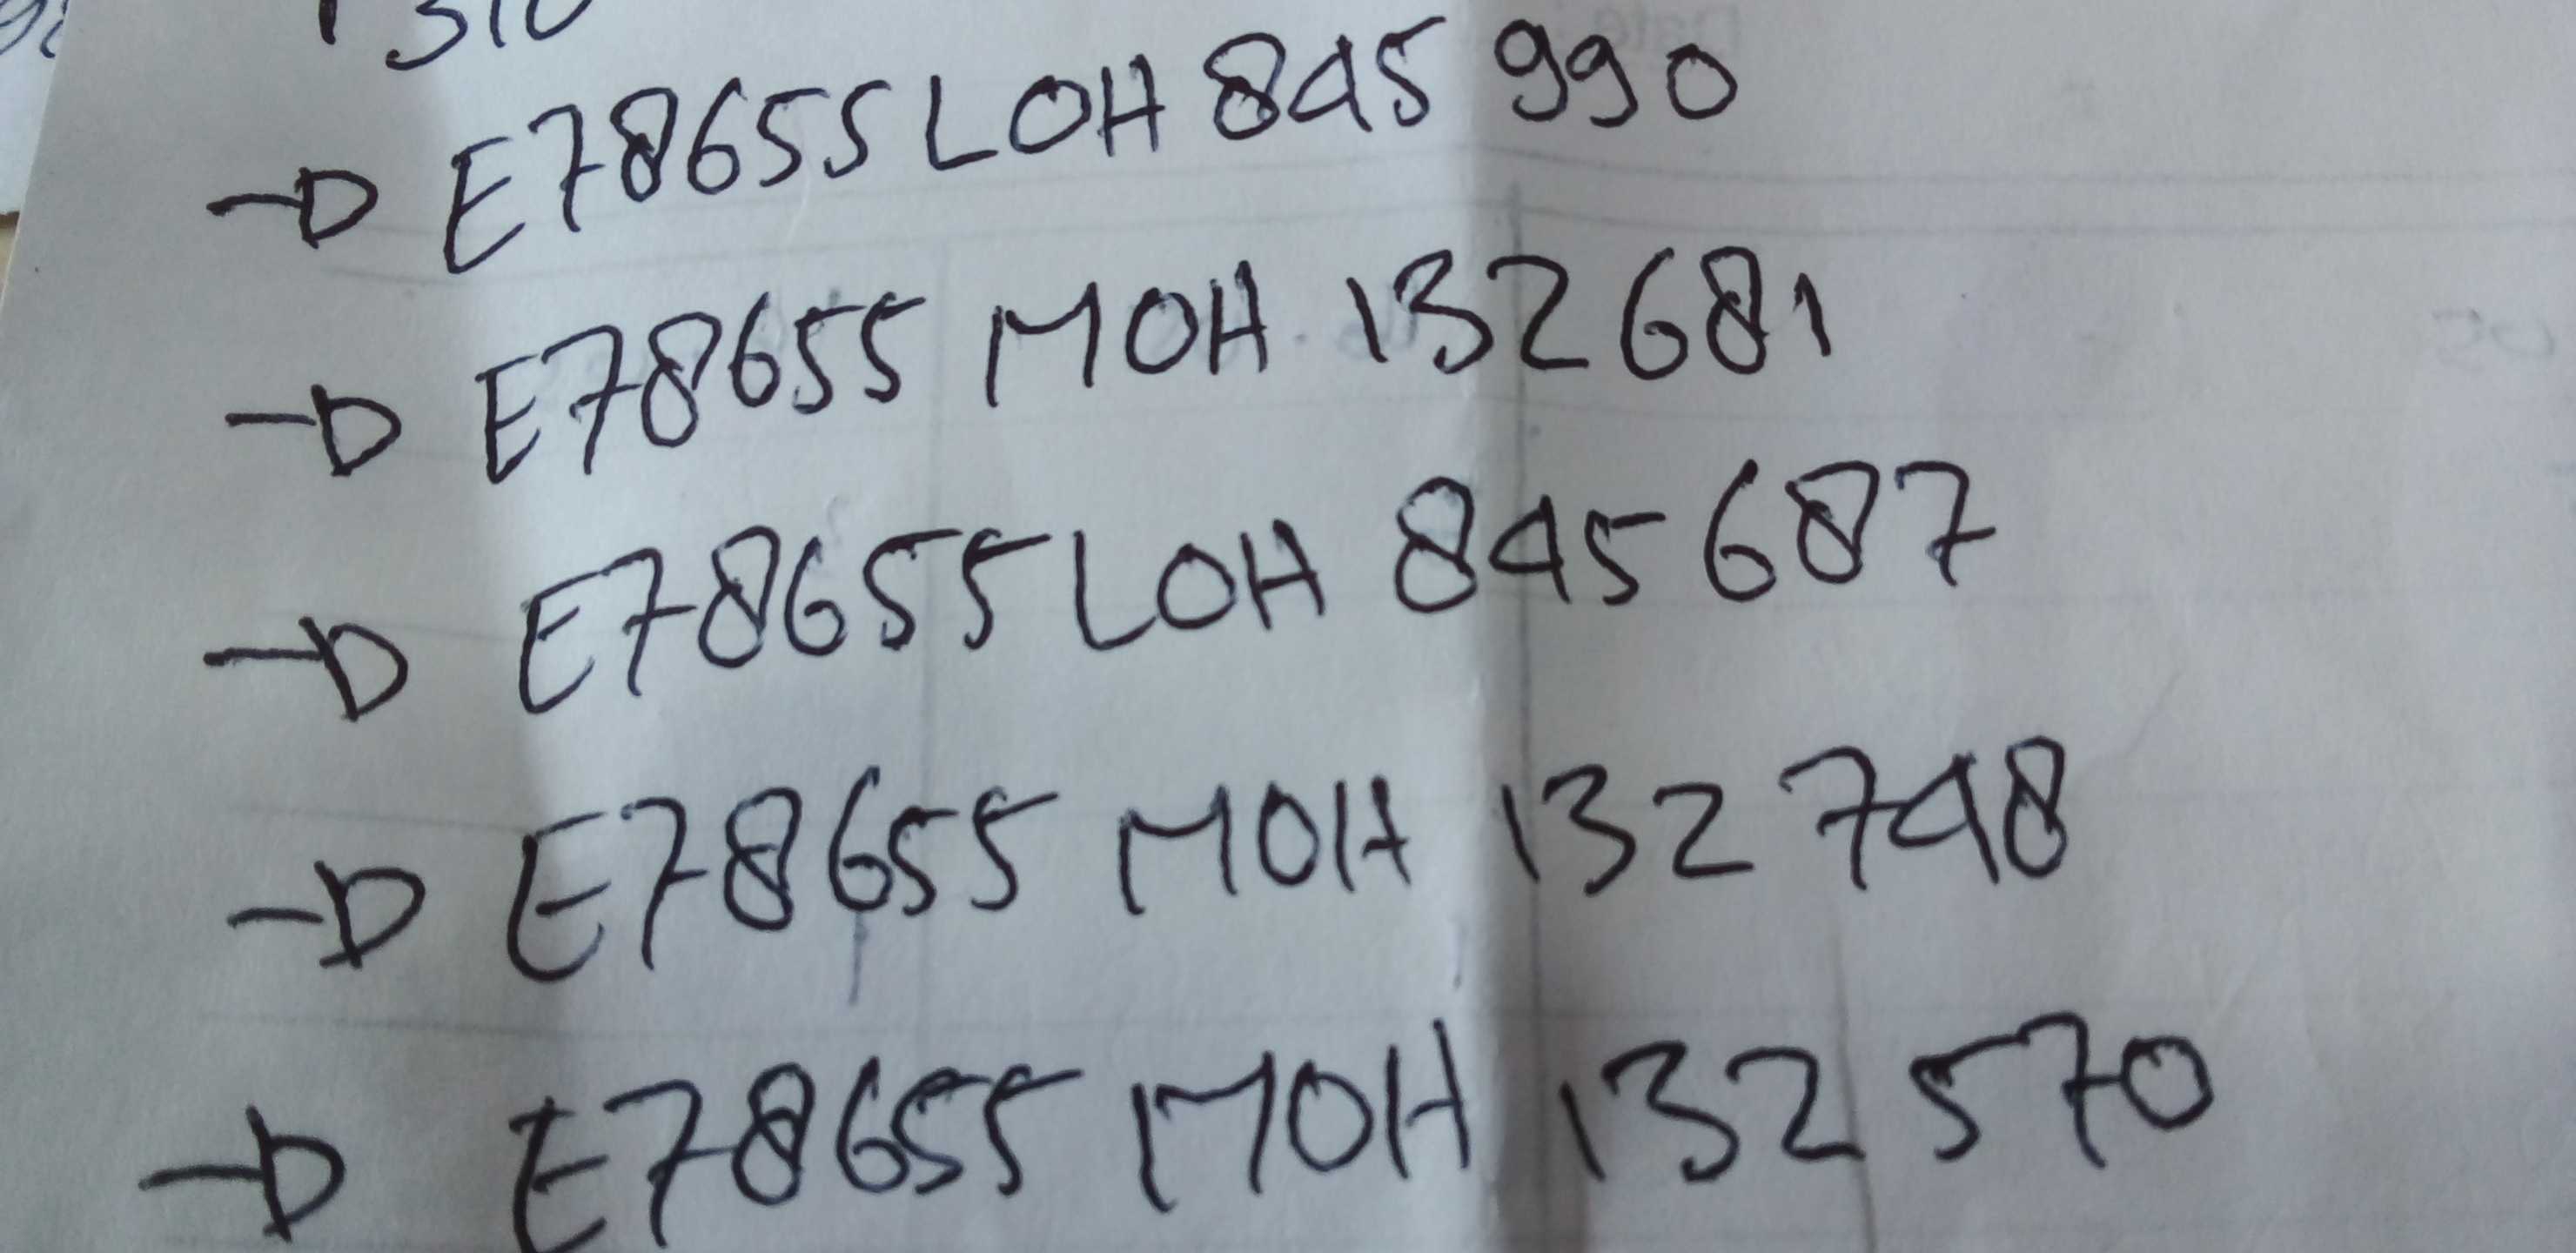 310
→ E78655LOH845990
→ E78655 MOH 132681
→ E78655LOH 845687
→ E78655 MOH 132748
→ E78655 MOH 132570